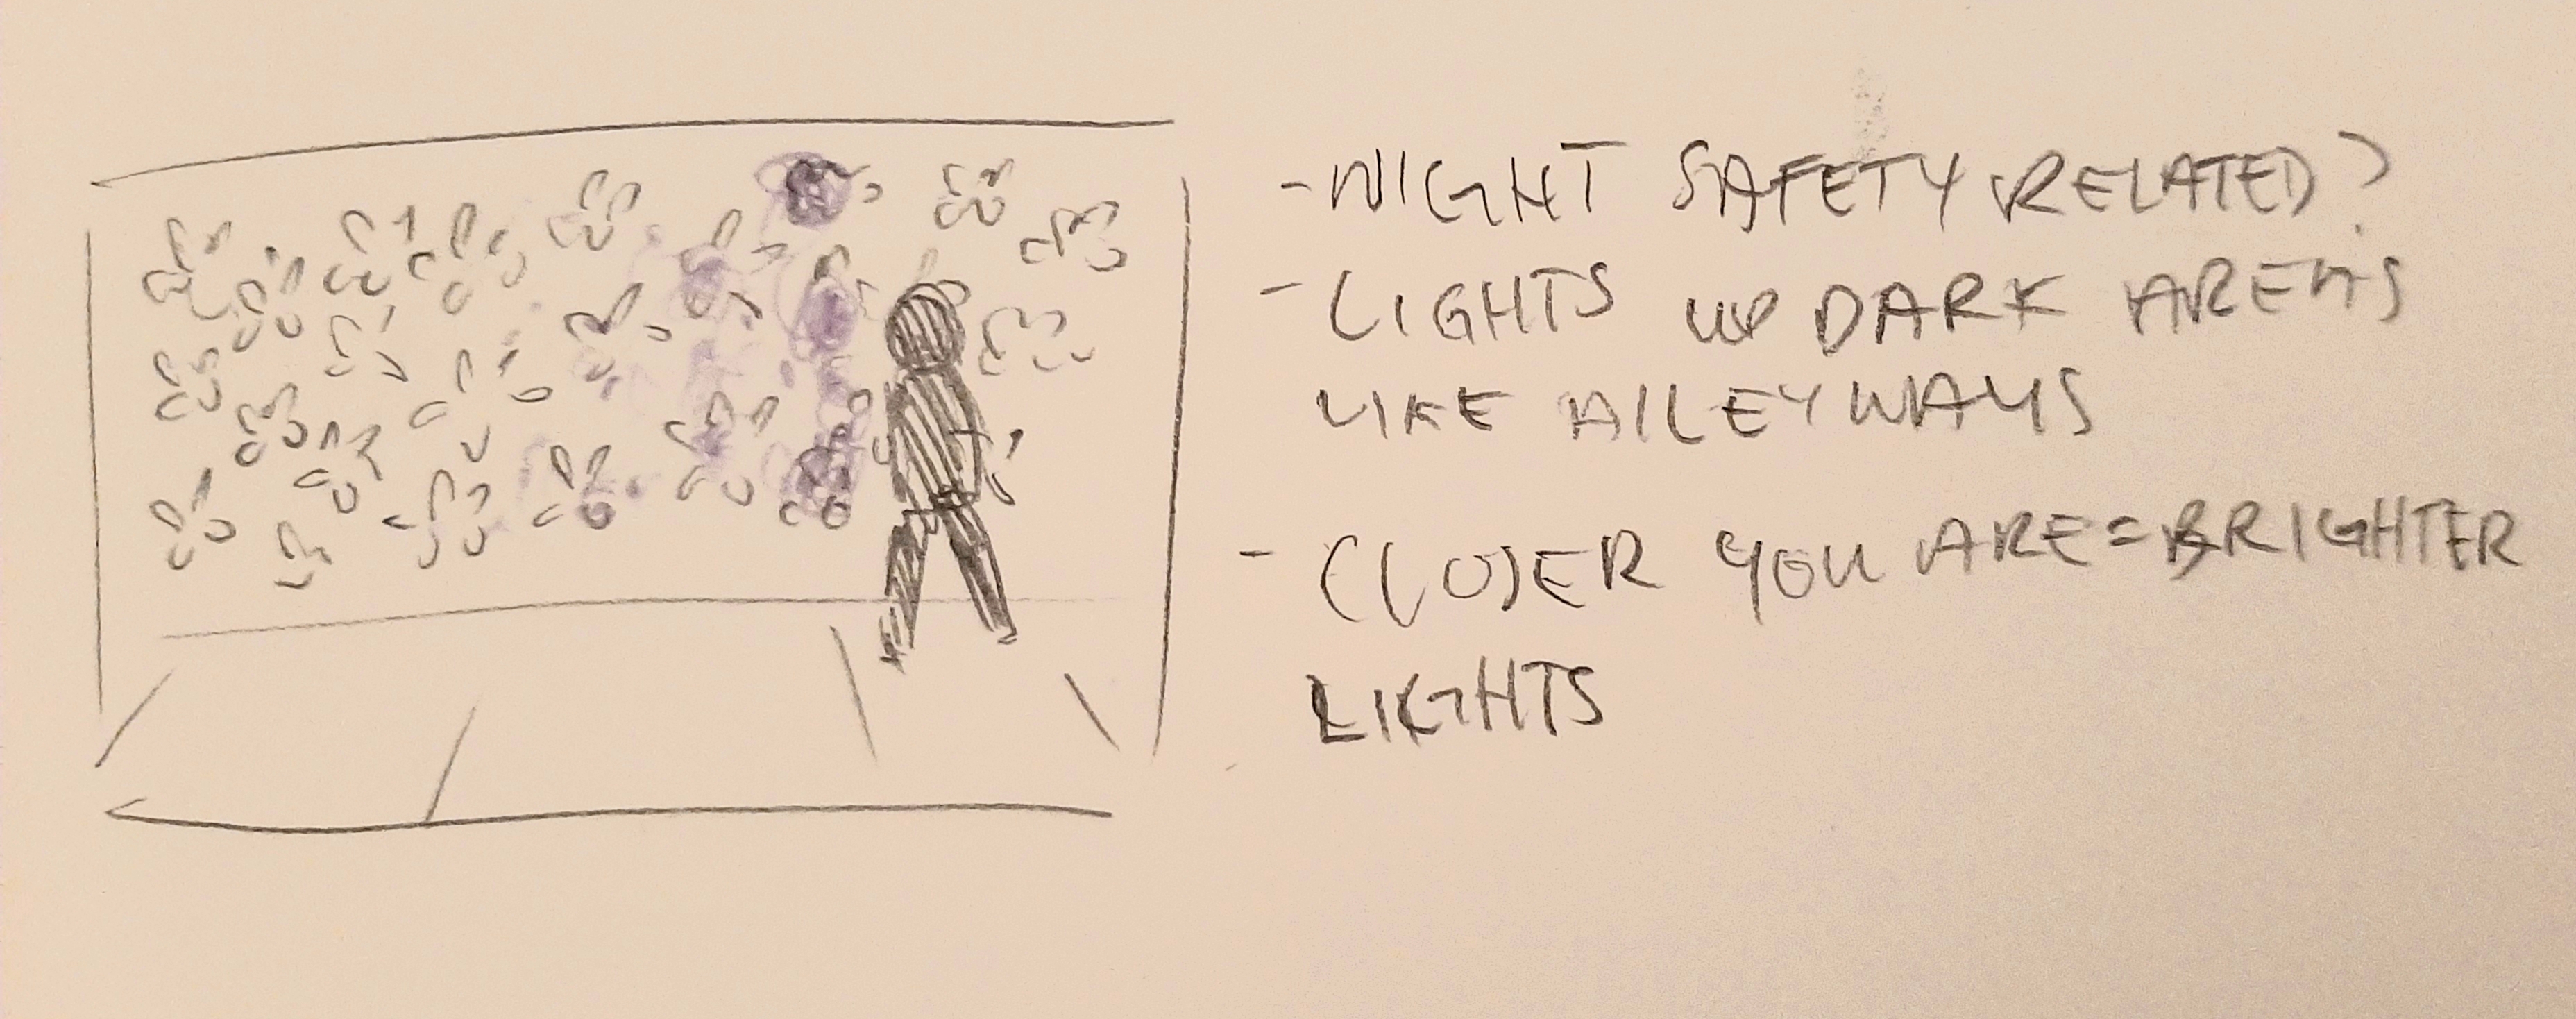 - NIGHT SAFETY RELATED?
- LIGHTS UP DARK AREAS
LIKE ALLEYWAYS
- CLOSER YOU ARE = BRIGHTER
LIGHTS